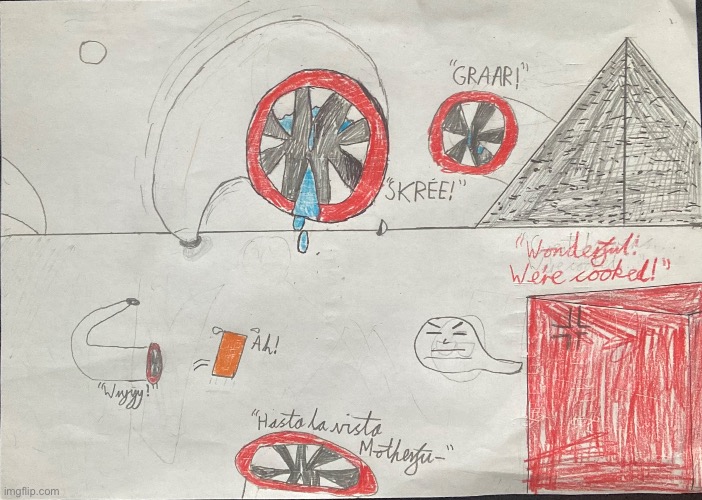 "GRAAR!"
"SKRÉE!"
"Wonderful!
We're cooked!"
Ah!
"Hasta la vista
Motherfu-"
imgflip.com